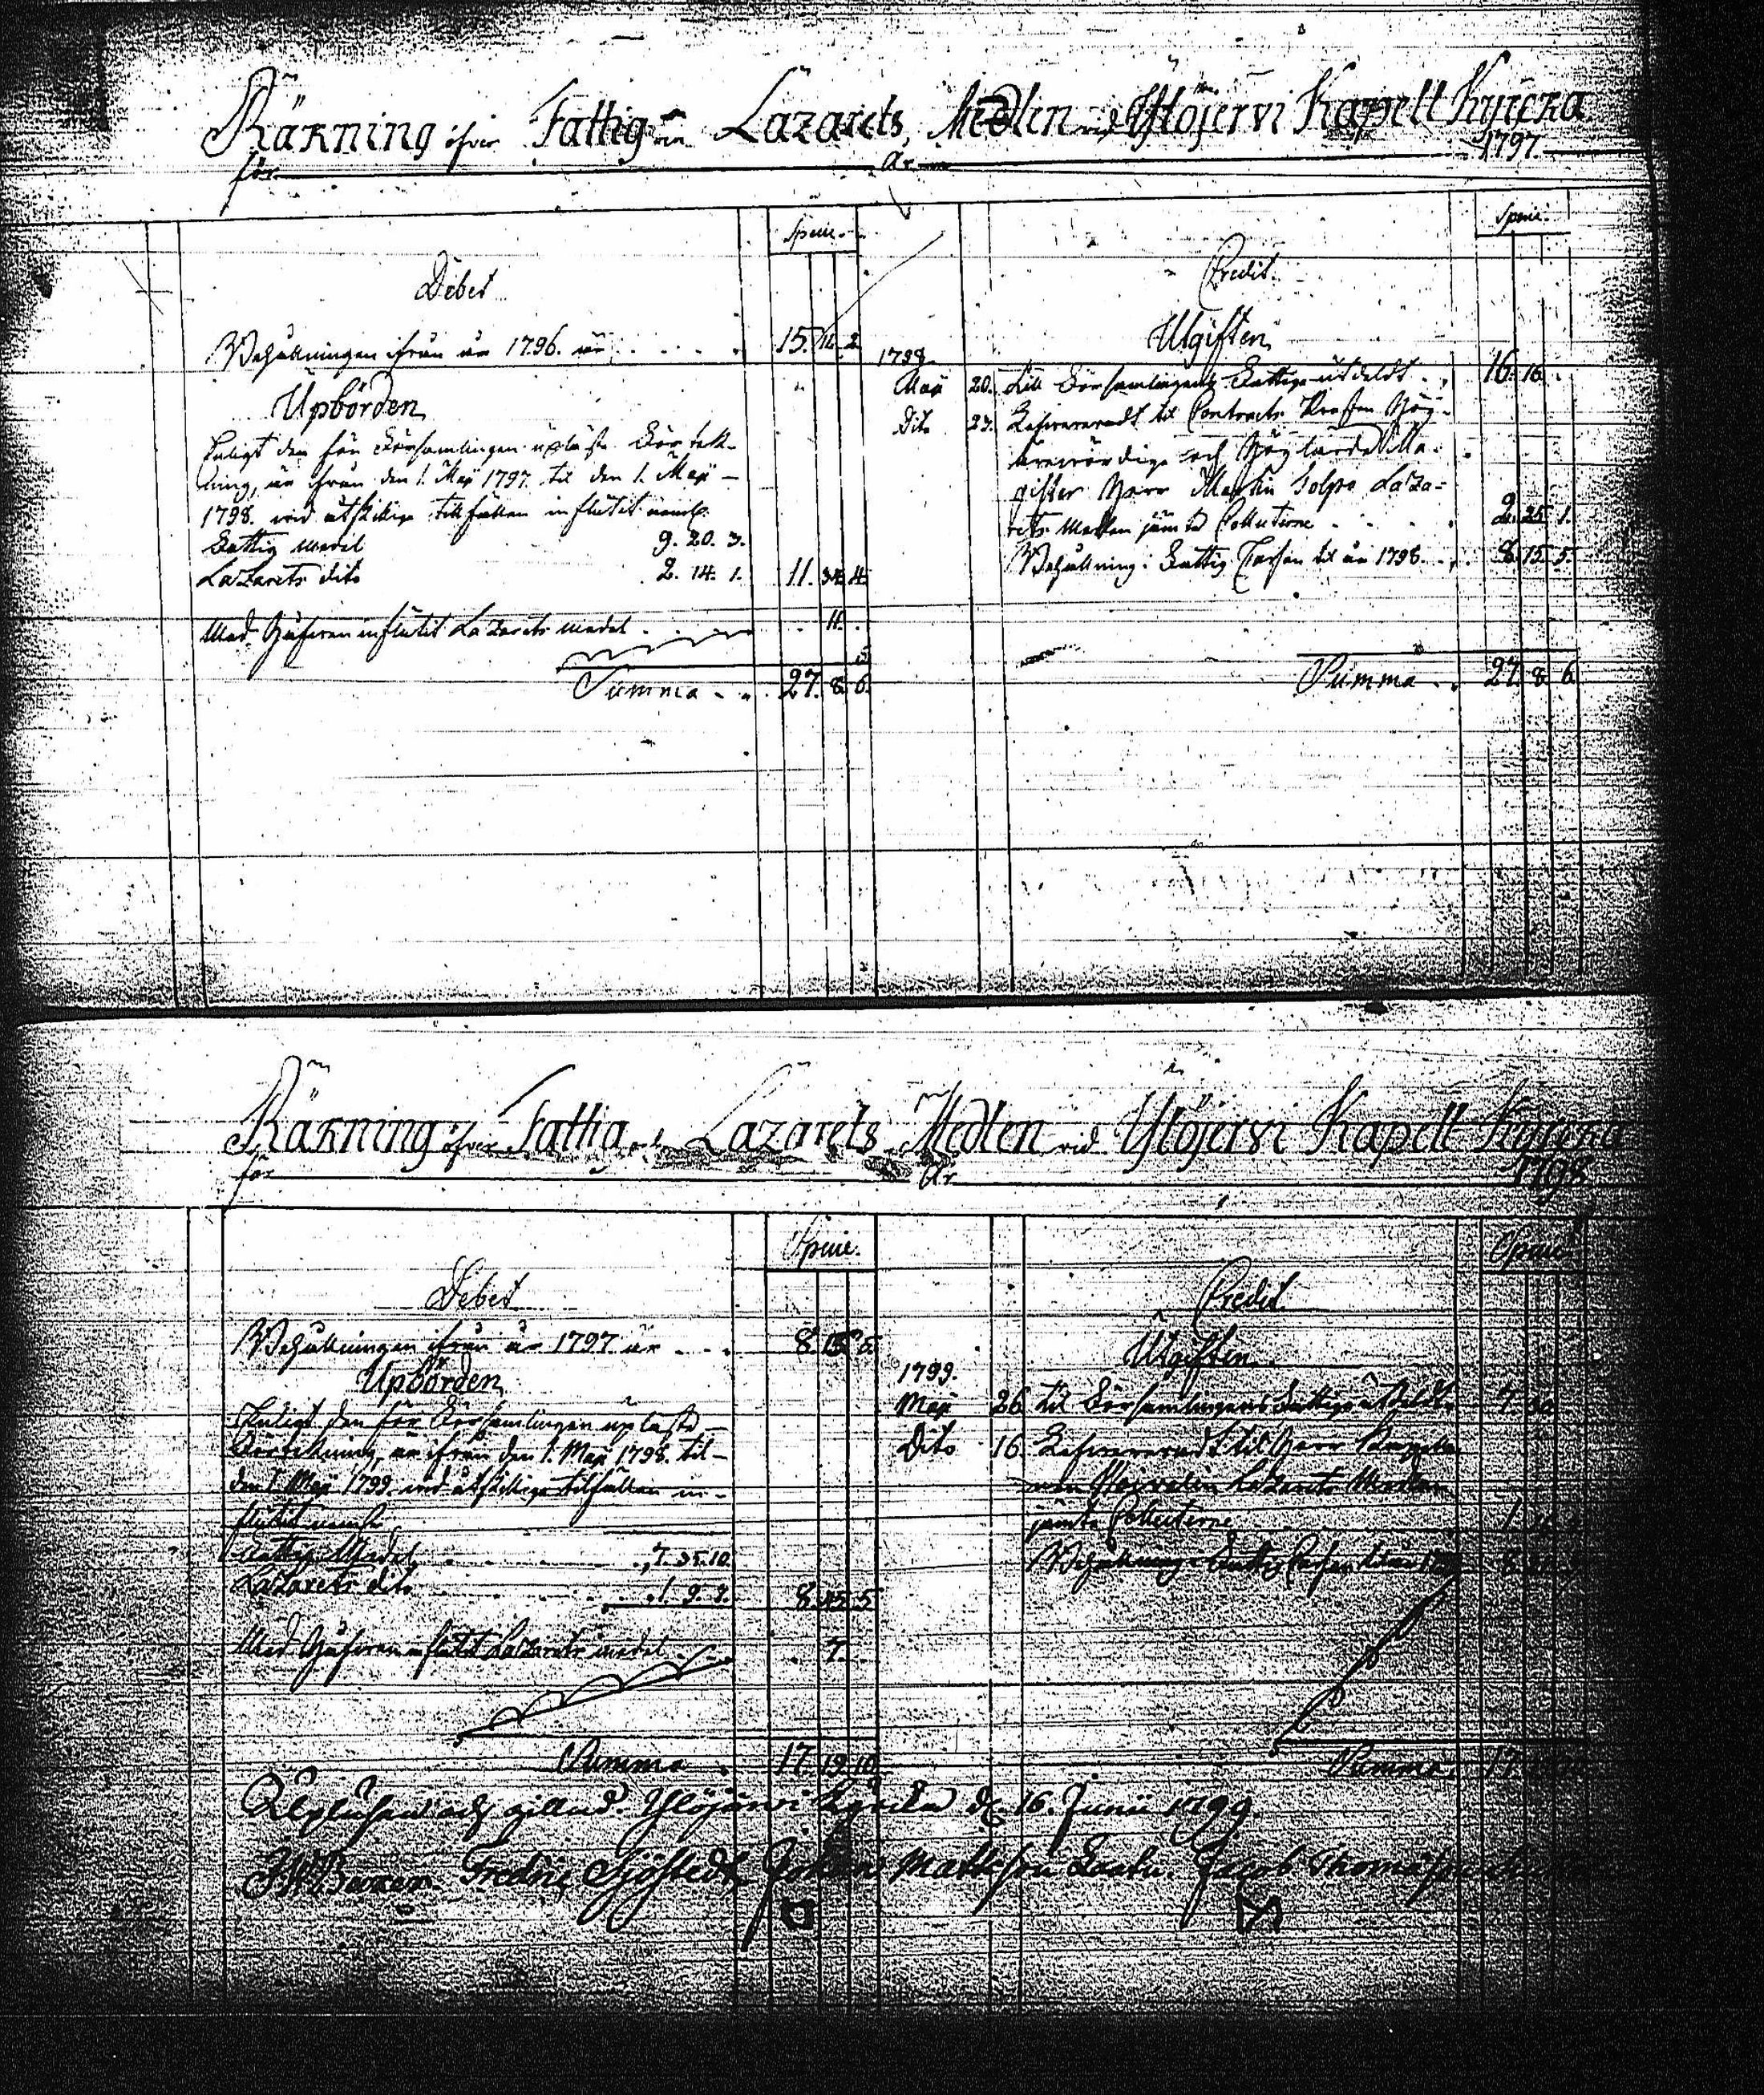 Räkning öfver Fattig och Lazarets Medlen vid Ylöjervi Kapell Kyrcka
för År 1797.
Specie.
Debet
Behållningen ifrån år 1796. är . . . . 15. 11. 2.
Upbörden
Enligt den för Församlingen upläste Förtek-
ning, är ifrån den 1. Maji 1797. til den 1. Maji
1798. vid åtskillige tillfällen influtit neml.
Fattig medel 9. 20. 3.
Lazarets dito 2. 14. 1. 11. 34. 4.
Med Håfven influtit Lazarets medel . . . . 11.
Summa . . 27. 8. 6.
Specie.
Credit.
Utgiften
1798.
Maji 20. Till Församlingens Fattige utdeldt . . 16. 16.
Dito 27. Lefvereradt til Contracts Prosten Hög-
ärevördige och Höglärde Ma-
gister Herr Martin Tolpo Laza-
rets Medlen jämte Collecterne . . . . 2. 25. 1.
Behållning i Fattig Cassan til år 1798. . . 8. 15. 5.
Summa . . 27. 8. 6.
Räkning öfver Fattig och Lazarets Medlen vid Ylöjervi Kapell Kyrcka
för År 1798
Specie.
Debet
Behållningen ifrån år 1797 är . . . 8. 15. 5.
Upbörden
Enligt den för Församlingen upläste
Förtekning, är ifrån den 1. Maji 1798. til
den 1. Maji 1799. vid åtskillige tilfällen in-
flutit neml.
Fattig Medel . . . . 7. 35. 10.
Lazarets dito . . . . 1. 9. 7. 8. 45. 5.
Med Håfven influtit Lazarets medel . . 7.
Summa . 17. 19. 10.
Specie.
Credit.
Utgiften
1799.
Maji 26 til Församlingens Fattige utdeldt
Dito 16 Lefvereradt til Herr
Lazarets Medlen
jämte Collecterne
Behållning i Fattig Cassan til år
Summa. 17.
Upläsen och gillad. Ylöjärvi Kyrcka d. 16. Junii 1799.
Fredric Sjöstedt Johans Mattsson Jacob Thomasson